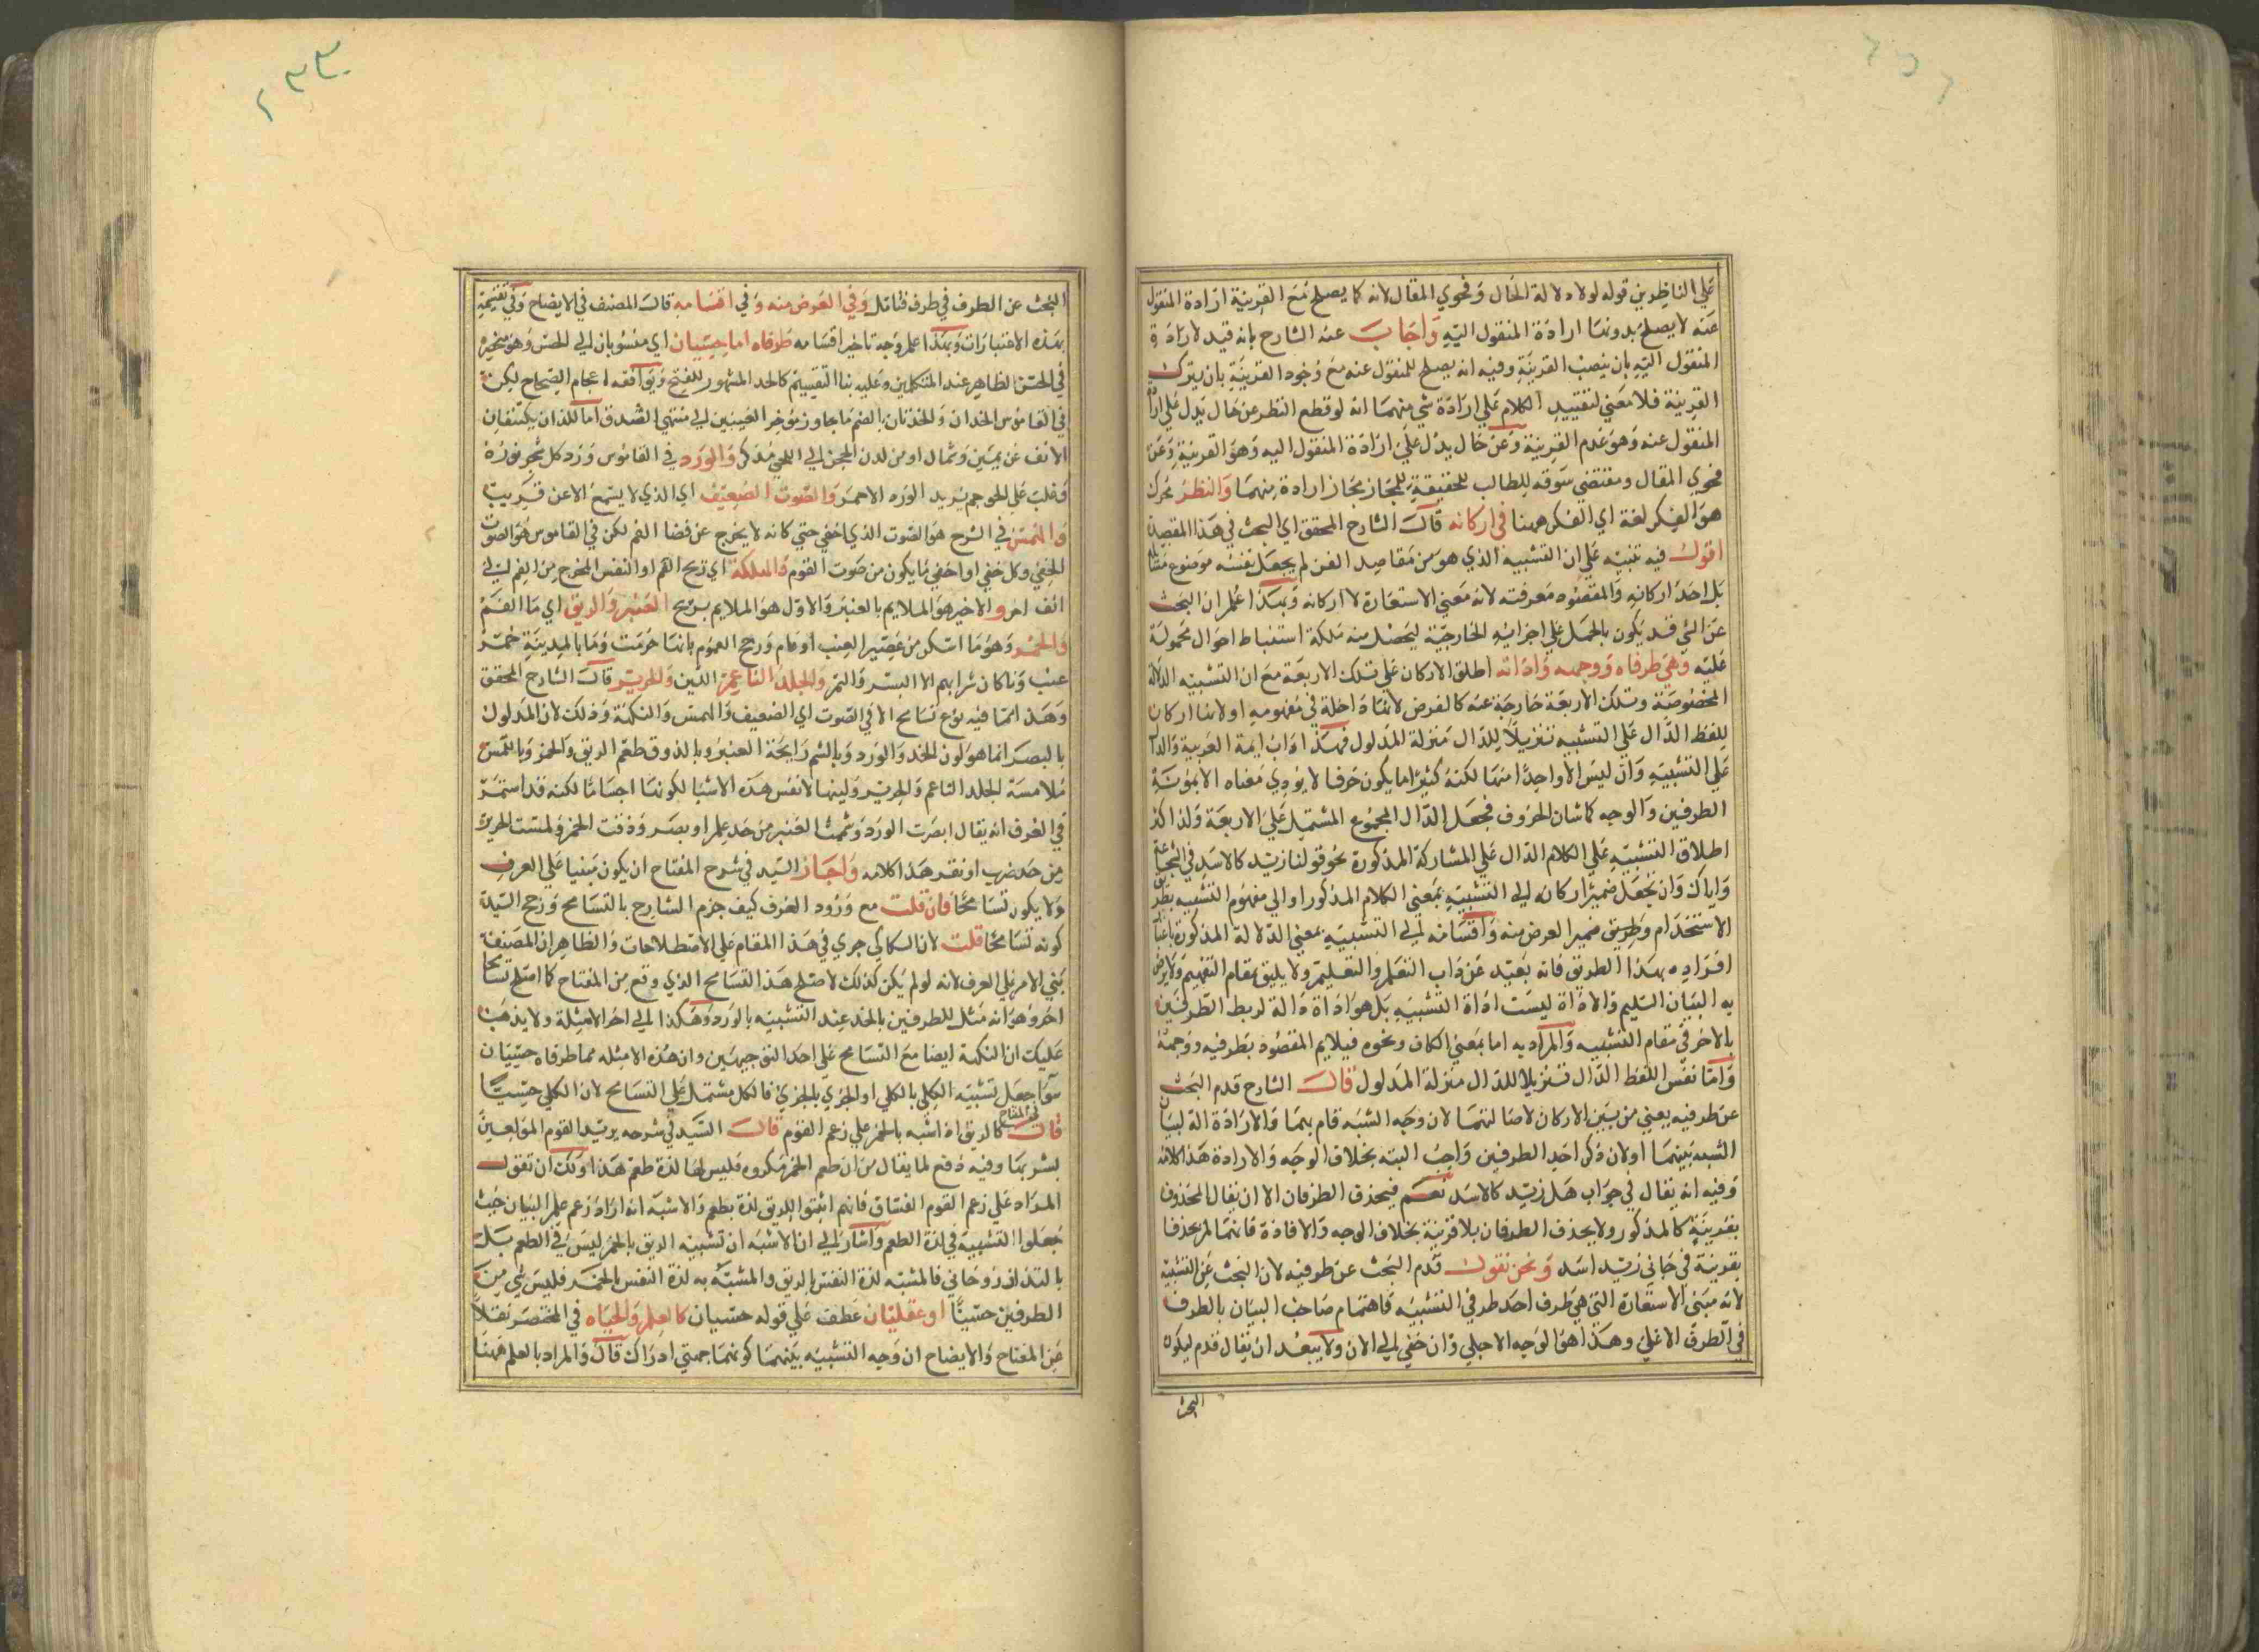 على الناظرين قوله لولا دلالة الحال وفحوي المقال لانه كما يصلح مع القرينة ارادة المنقول
عنه لا يصلح بدونها ارادة المنقول اليه واجاب عنه الشارح بانه قيد لارادة
المنقول اليه بان ينصب القرينة وفيه انه يصلح للمنقول عنه مع وجود القرينة بان يترك
القرينة فلا معني لتقييد الكلام علي ارادة شي منهما انه لو قطع النظر عن حال يدل علي ارادة
المنقول عنه وهو عدم القرينة وعن حال يدل علي ارادة المنقول اليه وهو القرينة وعن
فحوي المقال ومقتضي سوقه للطالب للحقيقة للمجاز بجاز ارادة منهما والنظر يحرك
هو الفكر لغة اي الفكر ههنا في اركانه قال الشارح المحقق اي البحث في هذا المقصد
اقول فيه تنبيه علي ان التشبيه الذي هو من مقاصد الفن لم يجعل نفسه موضوع
بل احد اركانه والمقصود معرفته لانه معني الاستعارة لا اركانه وبهذا اعلم ان البحث
عن الشي قد يكون بالحمل علي اجزائه الخارجية ليحصل منه ملكة استنباط احوال محمولة
عليه وهي طرفاه ووجهه واداته اطلق الاركان علي تلك الاربعة مع ان التشبيه الدلالة
المخصوصة وتلك الاربعة خارجة عنه كالفرض لانها داخلة في مفهومه او لانها اركان
للفظ الدال علي التشبيه تنزيلا للدال منزلة المدلول فهذا اداب ايمة العربية والدال
علي التشبيه وان ليس الا واحدا منها لكنه كثيرا ما يكون حرفا لا يؤدي معناه الا بمؤنة
الطرفين والوجه كما شان الحروف فجعل الدال المجموع المشتمل علي الاربعة ولذا كثر
اطلاق التشبيه علي الكلام الدال علي المشاركة المذكورة نحو قولنا زيد كالاسد في الشجاعة
واياك وان تجعل ضمير اركانه الي التشبيه بمعني الكلام المذكور او الي مفهوم التشبيه بطريق
الاستخدام وطريق ضمير العرض منه واقسامه الي التشبيه بمعني الدلالة المذكورة باعتبار
افراده بهذا الطريق فانه بعيد عن داب التعلم والتعليم ولا يليق بمقام التفهيم ولا يرضي
به البيان السليم والاداة ليست اداة التشبيه بل هو اداة دالة لربط الطرفين
بالاخر في مقام التشبيه والمراد به اما بمعني الكاف ونحوه فيلايم المقصود بطرفيه ووجهه
واما نفس اللفظ الدال تنزيلا للدال منزلة المدلول قال الشارح قدم البحث
عن طرفيه يعني من بين الاركان لاصالتهما لان وجه الشبه قام بهما والارادة الة لبيان
الشبه بينهما او لان ذكر احد الطرفين واجب البته بخلاف الوجه والارادة هذا كلامه
وفيه انه يقال في جواب هل زيد كالاسد نعم فيحذف الطرفان الا ان يقال المحذوف
بقرينة كالمذكور ولا يحذف الطرفان بلا قرينة بخلاف الوجه والافادة فانهما لم يحذفا
بقرينة في جاني زيد اسد ونحن نقول قدم البحث عن طرفيه لان البحث عن التشبيه
لانه مبني الاستعارة التي هي طرف احد طرفي التشبيه فاهتمام صاحب البيان بالطرف
في الطرق الاعلي وهكذا هو الوجه الاجلي وان خفي الي الان ولا يبعد ان يقال قدم ليكون
البحث
البحث عن الطرف في طرف فتامل وفي الغرض منه وفي اقسامه قال المصنف في الايضاح وفي تقسيمه
بهذه الاعتبارات وبهذا علم وجه تاخير اقسامه طرفاه اما حسيان اي منسوبان الي الحس وهو منحصر
في الحس الظاهر عند المتكلمين وعليه بنا التقسيم كالحد المشهور للفتح ويوافقه اعجام الصحاح لكن
في القاموس الخدان والخدتان بالضم ما جاوز مؤخر العينين الي منتهي الشدق او اللذان يكتنفان
الانف عن يمين وشمال او من لدن المحجر الي اللحي مذكر والورد في القاموس ورد كل شجر نوره
وغلب علي الحوجم يريد الورد الاحمر والصوت الضعيف اي الذي لا يسمع الا عن قريب
والهمس في الشرح هو الصوت الذي اخفي حتي كانه لا يخرج عن فضا الفم لكن في القاموس هو الصوت
الخفي وكل خفي او اخفي ما يكون من صوت القوم والنكهة اي ريح الفم او النفس المخرج من الفم الي
انف اخر والاخير هو الملايم بالعنبر والاول هو الملايم بريح العنبر والريق اي ما الفم
والخمر وهو ما اسكر من عصير العنب او عام ورجح العموم بانها حرمت وما بالمدينة خمر
عنب وما كان شرابهم الا البسر والتمر والجلد الناعم اللين والحرير قال الشارح المحقق
وهذا مما فيه نوع تسامح الا في الصوت اي الضعيف والهمس والنكهة وذلك لان المدلول
بالبصر انما هو لون الخد والورد وبالشم رايحة العنبر وبالذوق طعم الريق والخمر وباللمس
ملامسة الجلد الناعم والحرير ولينها لا نفس هذه الاشيا لكونها اجساما لكنه قد استمر
في العرف انه يقال ابصرت الورد وشممت العنبر من حد علم او بصر وذقت الخمر ولمست الحرير
من حد ضرب او نقر هذا كلامه واجاز السيد في شرح المفتاح ان يكون مبنيا علي العرف
ولا يكون تسامحا فان قلت مع ورود العرف كيف جزم الشارح بالتسامح ورجح السيد
كونه تسامحا قلت لان السكاكي جري في هذا المقام علي الاصطلاحات والظاهر ان المصنف
بني الامر علي العرف لانه لو لم يكن كذلك لاصلح هذا التسامح الذي وقع من المفتاح كما اصلح تسامحا
اخر وهو انه مثل للطرفين بالخد عند التشبيه بالورد وهكذا الي اخر الامثلة ولا يذهب
عليك ان النكهة ايضا مع التسامح علي احد التوجيهين وان هذه الامثله مما طرفاه حسيان
سوا جعل تشبيه الكلي بالكلي او الجزي بالجزي فالكل مشتمل علي التسامح لان الكلي حسيا
قال في المفتاح كالريق اذا شبه بالخمر علي زعم القوم قال السيد في شرحه يريد القوم المولعين
بشربها وفيه دفع لما يقال من ان طعم الخمر مكروه فليس لها لذة طعم هذا ولك ان تقول
المراد علي زعم القوم الفساق فانهم اثبتوا للريق لذة بطعم والاشبه انه اراد زعم علم البيان حيث
جعلوا التشبيه في لذة الطعم واشار الي ان الاشبه ان تشبيه الريق بالخمر ليس في الطعم بل
بالتذاذ روحاني فالمشبه لذة النفس بالريق والمشبه به لذة النفس بالخمر فليس شي من
الطرفين حسيا او عقليان عطف علي قوله حسيان كالعلم والحياه في المختصر نقلا
عن المفتاح والايضاح ان وجه التشبيه بينهما كونهما جهتي ادراك قال والمراد بالعلم ههنا